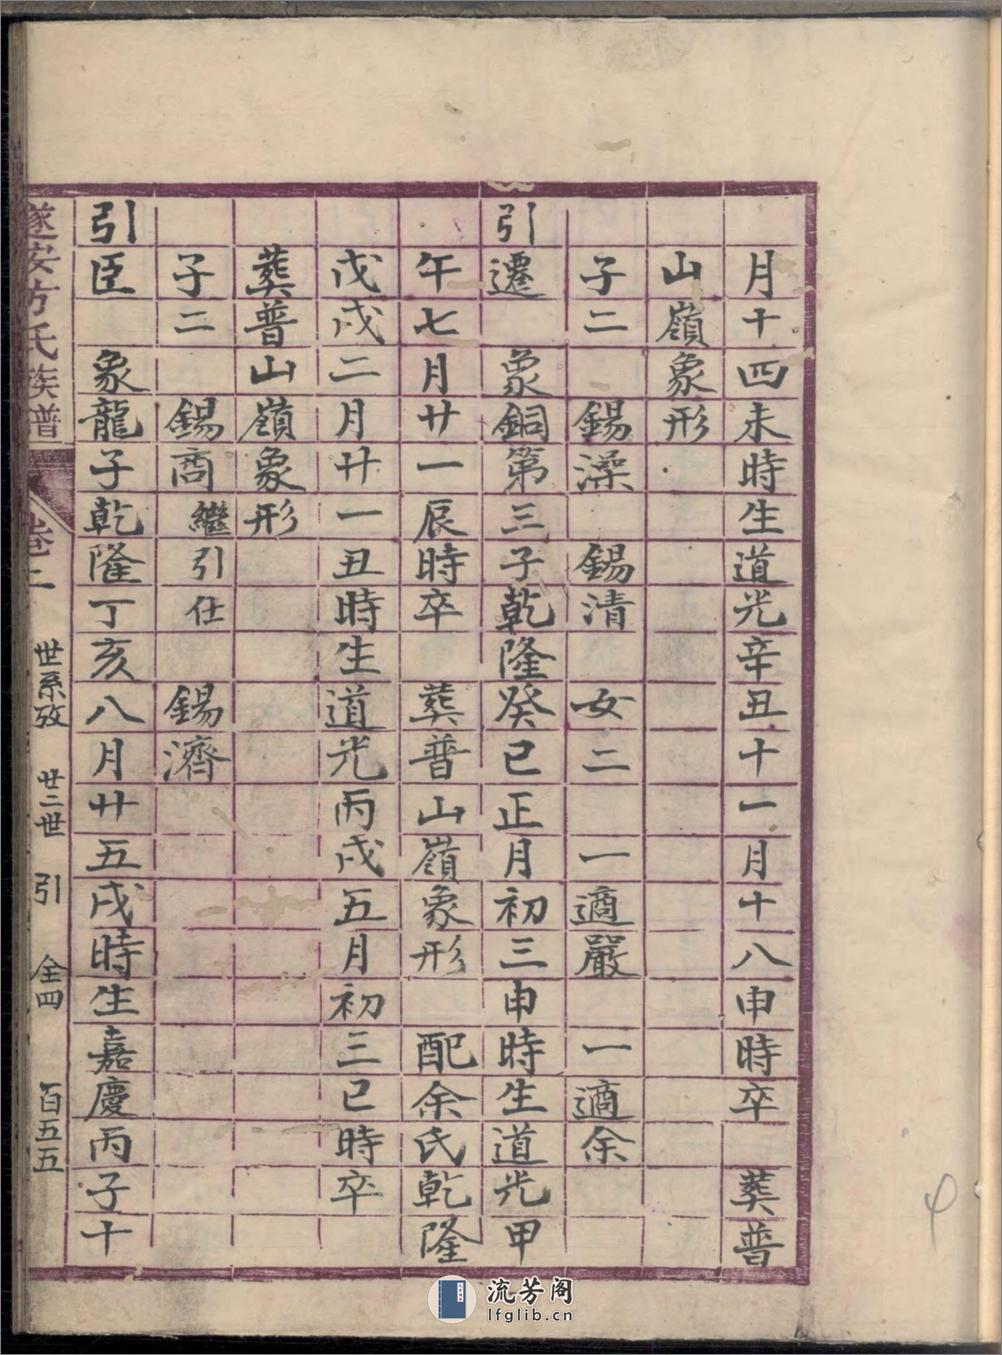 月十四未時生道光辛丑十一月十八申時卒　葬普
山嶺象形
子二　錫澡　錫清　女二　一適嚴　一適余
引遷　象銅第三子乾隆癸巳正月初三申時生道光甲
午七月廿一辰時卒　葬普山嶺象形　配余氏乾隆
戊戌二月廿一丑時生道光丙戌五月初三巳時卒
葬普山嶺象形
子二　錫商繼引仕　錫濟
引臣　象龍子乾隆丁亥八月廿五戌時生嘉慶丙子十
遂安方氏族譜　卷二　世系攷　廿二世　引　仝四　百五五
流芳阁
lfglib.cn